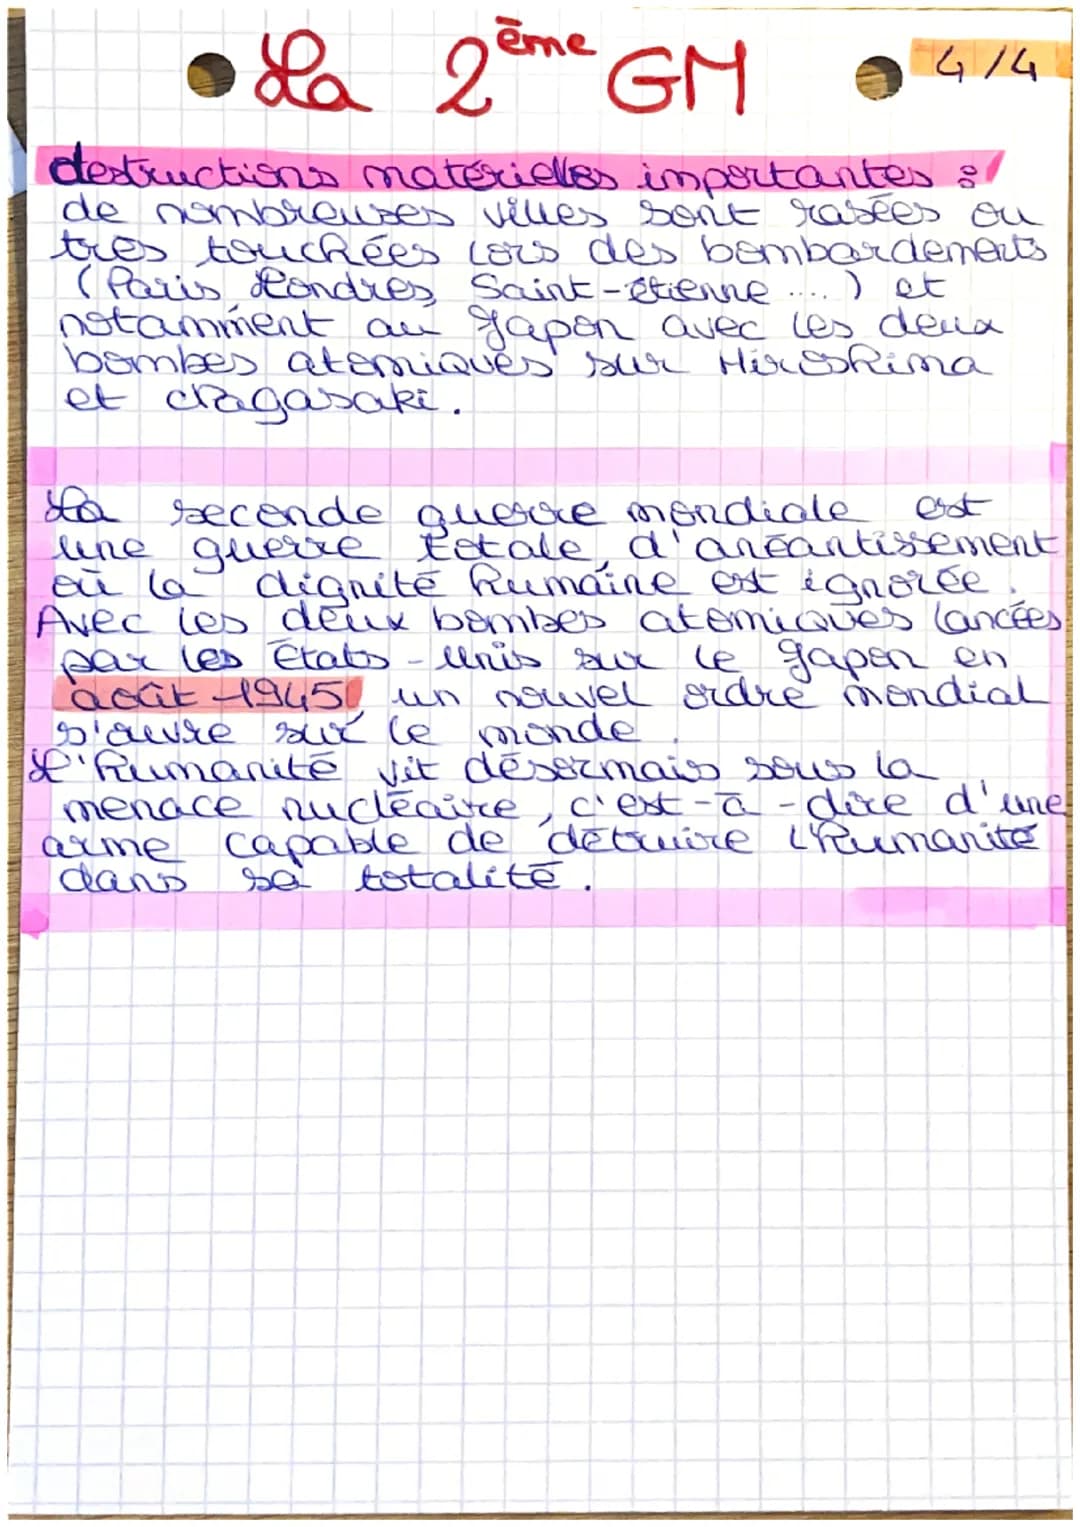 La 2ème GM
4/4
destructions matérielles importantes :
de nombreuses villes sont rasées ou
très touchées lors des bombardements
(Paris, Londres, Saint-étienne ....) et
notamment au Japon avec les deux
bombes atomiques sur Hiroshima
et Nagasaki.
La seconde guerre mondiale est
une guerre totale, d'anéantissement
où la dignité humaine est ignorée.
Avec les deux bombes atomiques lancées
par les États-Unis sur le Japon en
août 1945, un nouvel ordre mondial
s'ouvre sur le monde.
L'humanité vit désormais sous la
menace nucléaire, c'est-à-dire d'une
arme capable de détruire l'humanité
dans sa totalité.